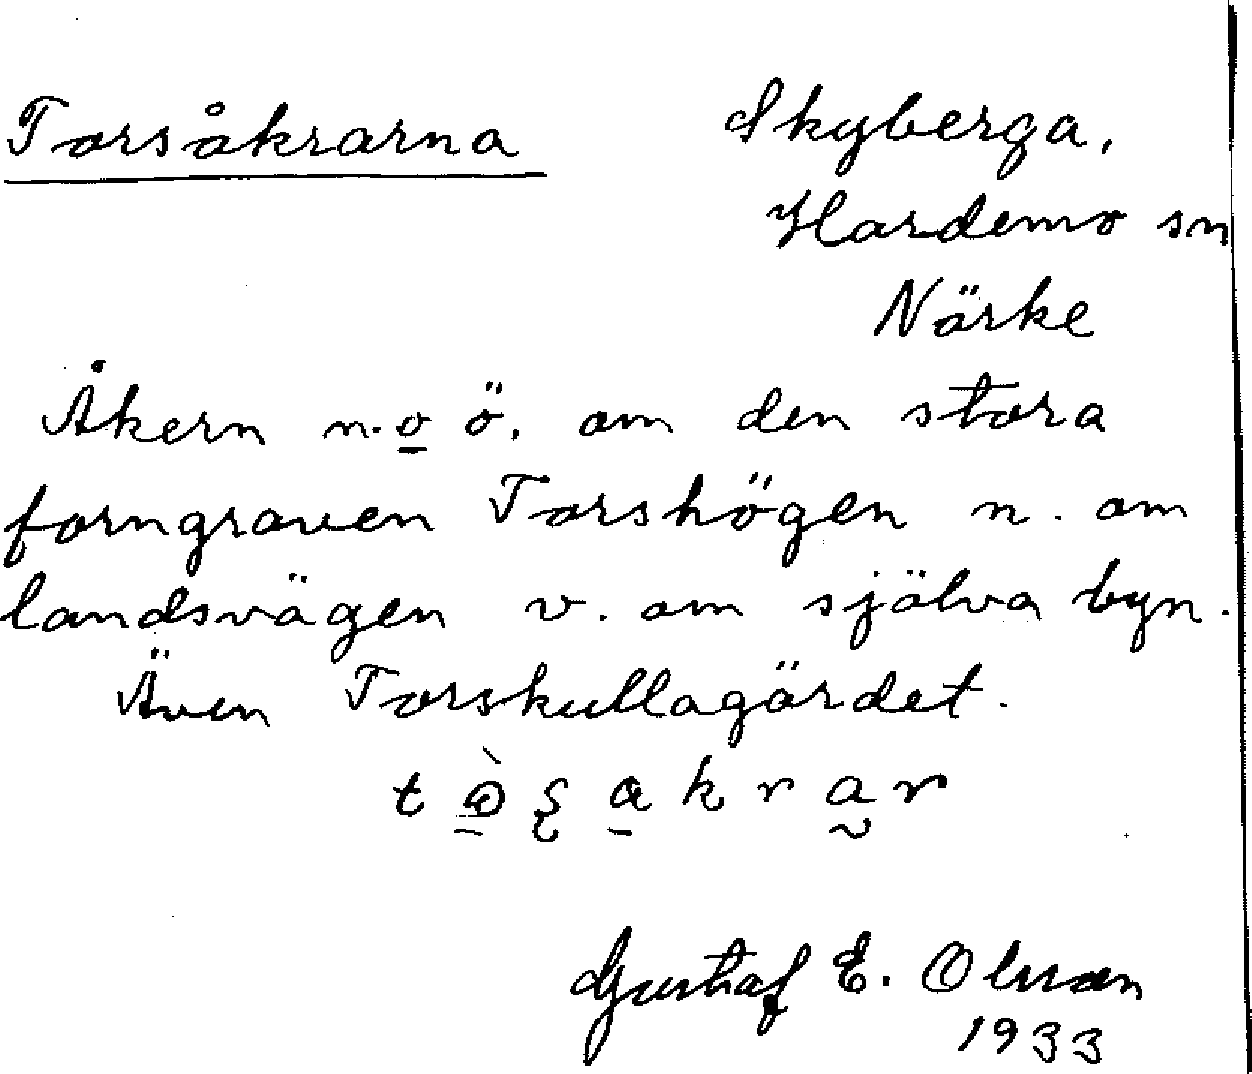 Torsåkrarna
Skyberga,
Hardemo sn
Närke
Åkern n. o ö. om den stora
forngraven Torshögen n. om
landsvägen v. om själva byn.
Även Torskullagärdet.
Gustaf E. Olsson
1933